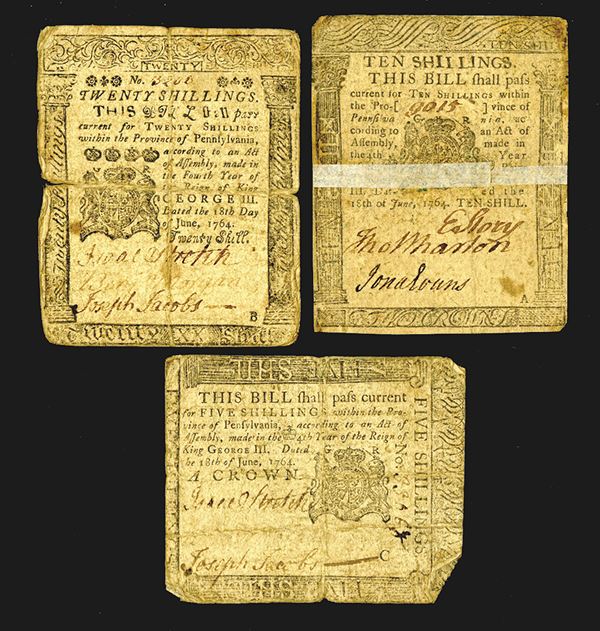 TWENTY
No.
TWENTY SHILLINGS.
THIS
current for TWENTY SHILLINGS
within the Province of Pennſylvania,
according to an Act
of Aſſembly, made in
the Fourth Year of
the Reign of King
GEORGE III.
Dated the 18th Day
of June, 1764.
Twenty Shill.
Joseph Jacobs
B
XX
TEN SHI
TEN SHILLINGS.
THIS BILL ſhall paſs
current for TEN SHILLINGS within
the Pro-[ 9015 ]vince of
Pennſilva G R nia, ac
cording to an Act of
Aſſembly, made in
Year
III. Da- ed the
18th of June, 1764. TEN-SHILL.
E Story
Tho Wharton
Jon Evans
A
FIVE SHIL
THIS BILL ſhall paſs current
for FIVE SHILLINGS within the Pro-
vince of Penſylvania, according to an Act of
Aſſembly, made in the 4th Year of the Reign of
King GEORGE III. Dated G R
the 18th of June, 1764.
A CROWN.
No.
FIVE SHILLINGS
Joseph Jacobs
C